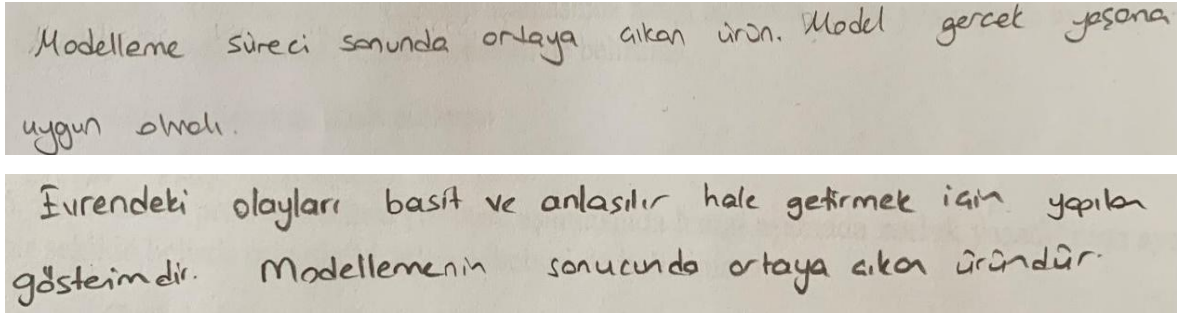 Modelleme süreci sonunda ortaya çıkan ürün. Model gercek yaşama
uygun olmalı.
Evrendeki olayları basit ve anlaşılır hale getirmek için yapılan
gösteimdir. Modellemenin sonucunda ortaya çıkan üründür.